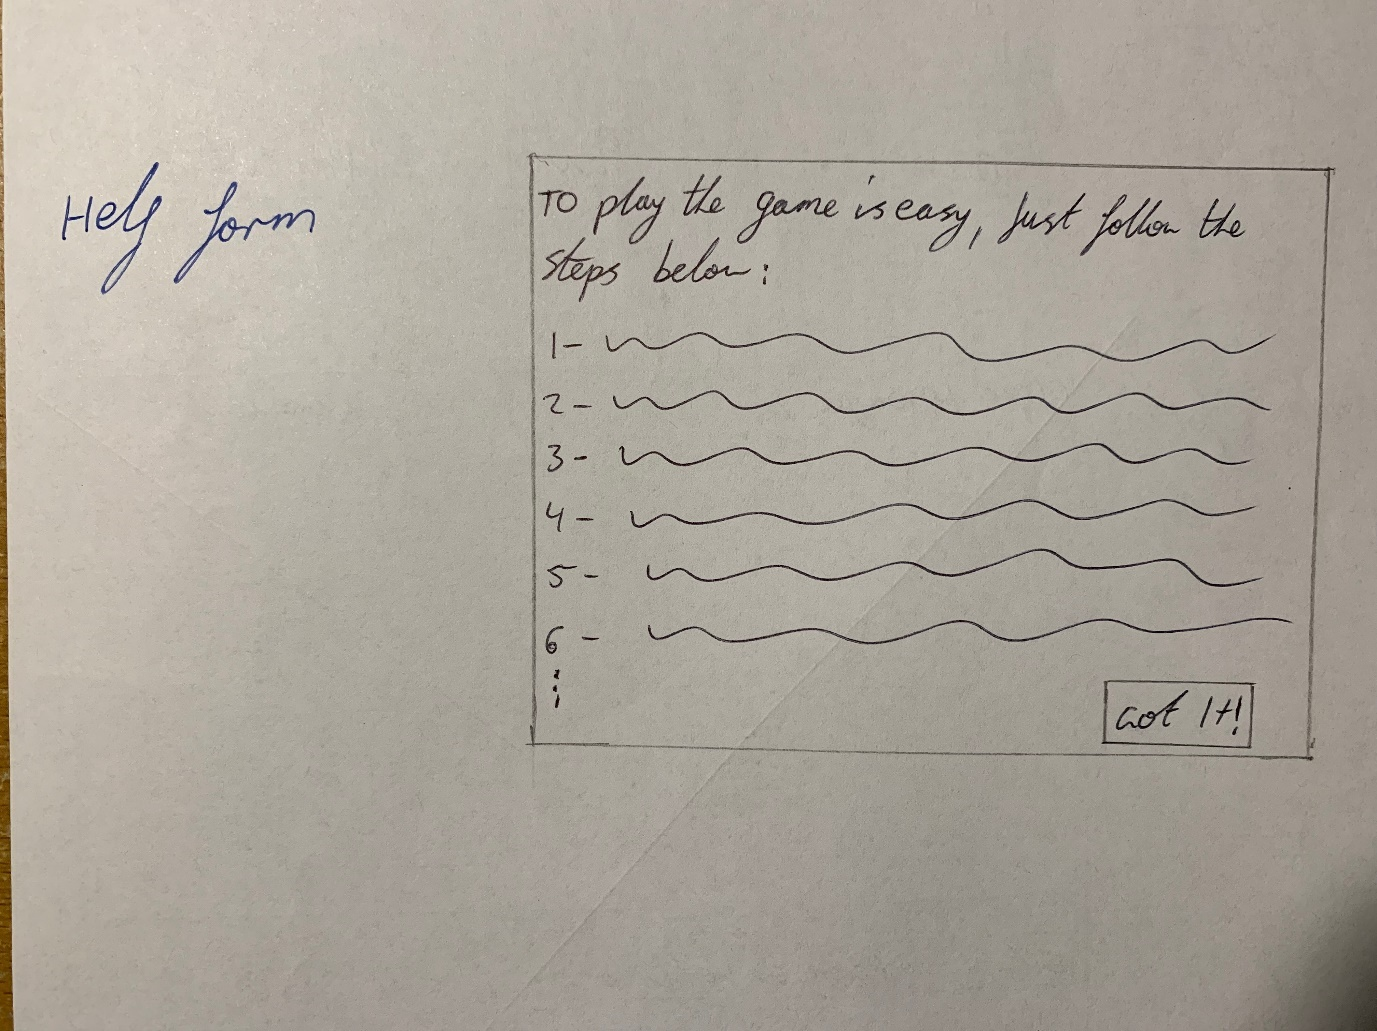 Help form
TO play the game is easy, Just follow the
steps below:
1-
2-
3-
4-
5-
6-
Got It!